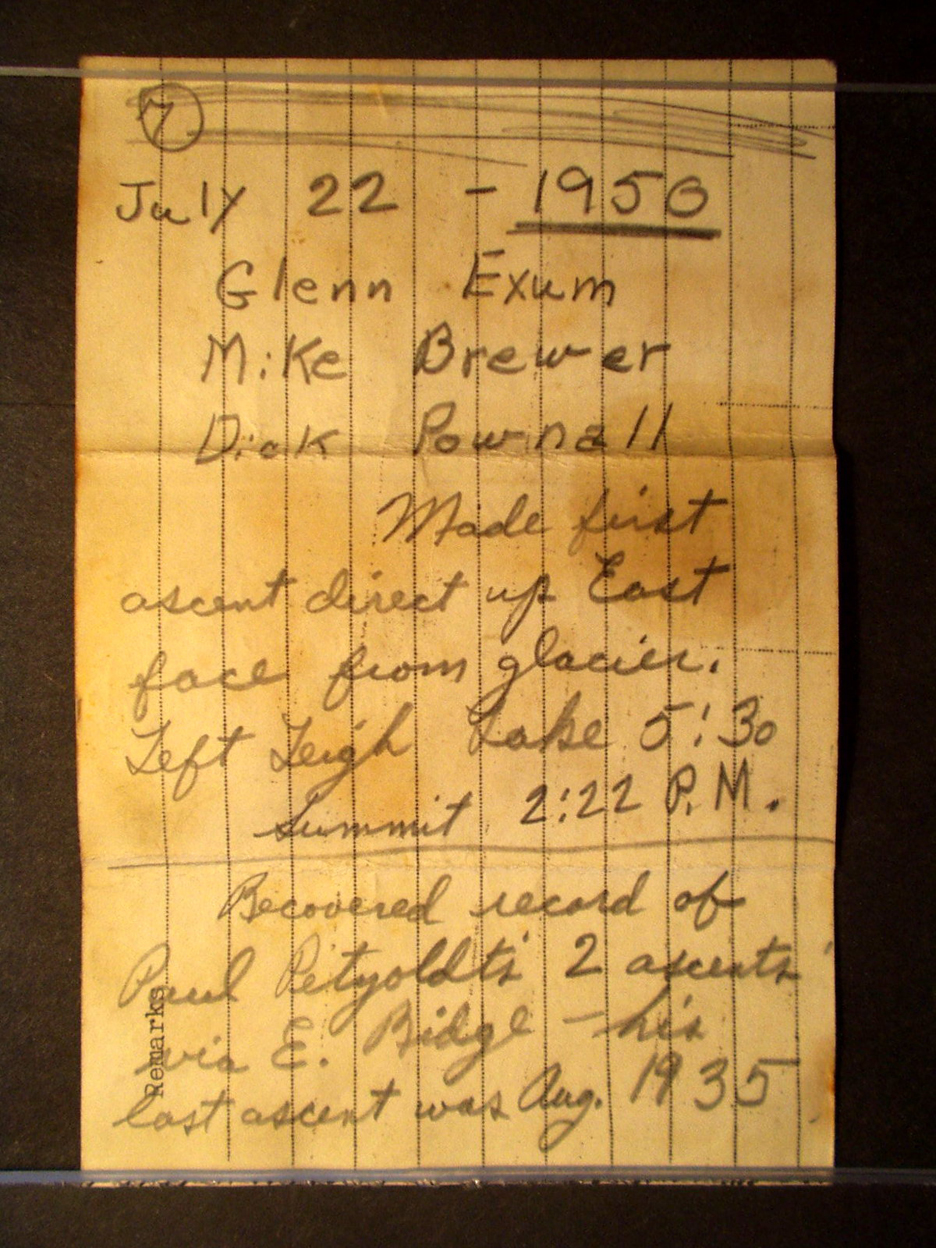 7
July 22 - 1950
Glenn Exum
Mike Brewer
Dick Pownall
Made first
ascent direct up East
face from glacier.
Left Leigh Lake 5:30
Summit 2:22 P.M.
Recovered record of
Paul Petzoldts' 2 ascents
via E. Ridge - his
last ascent was Aug. 1935
Remarks